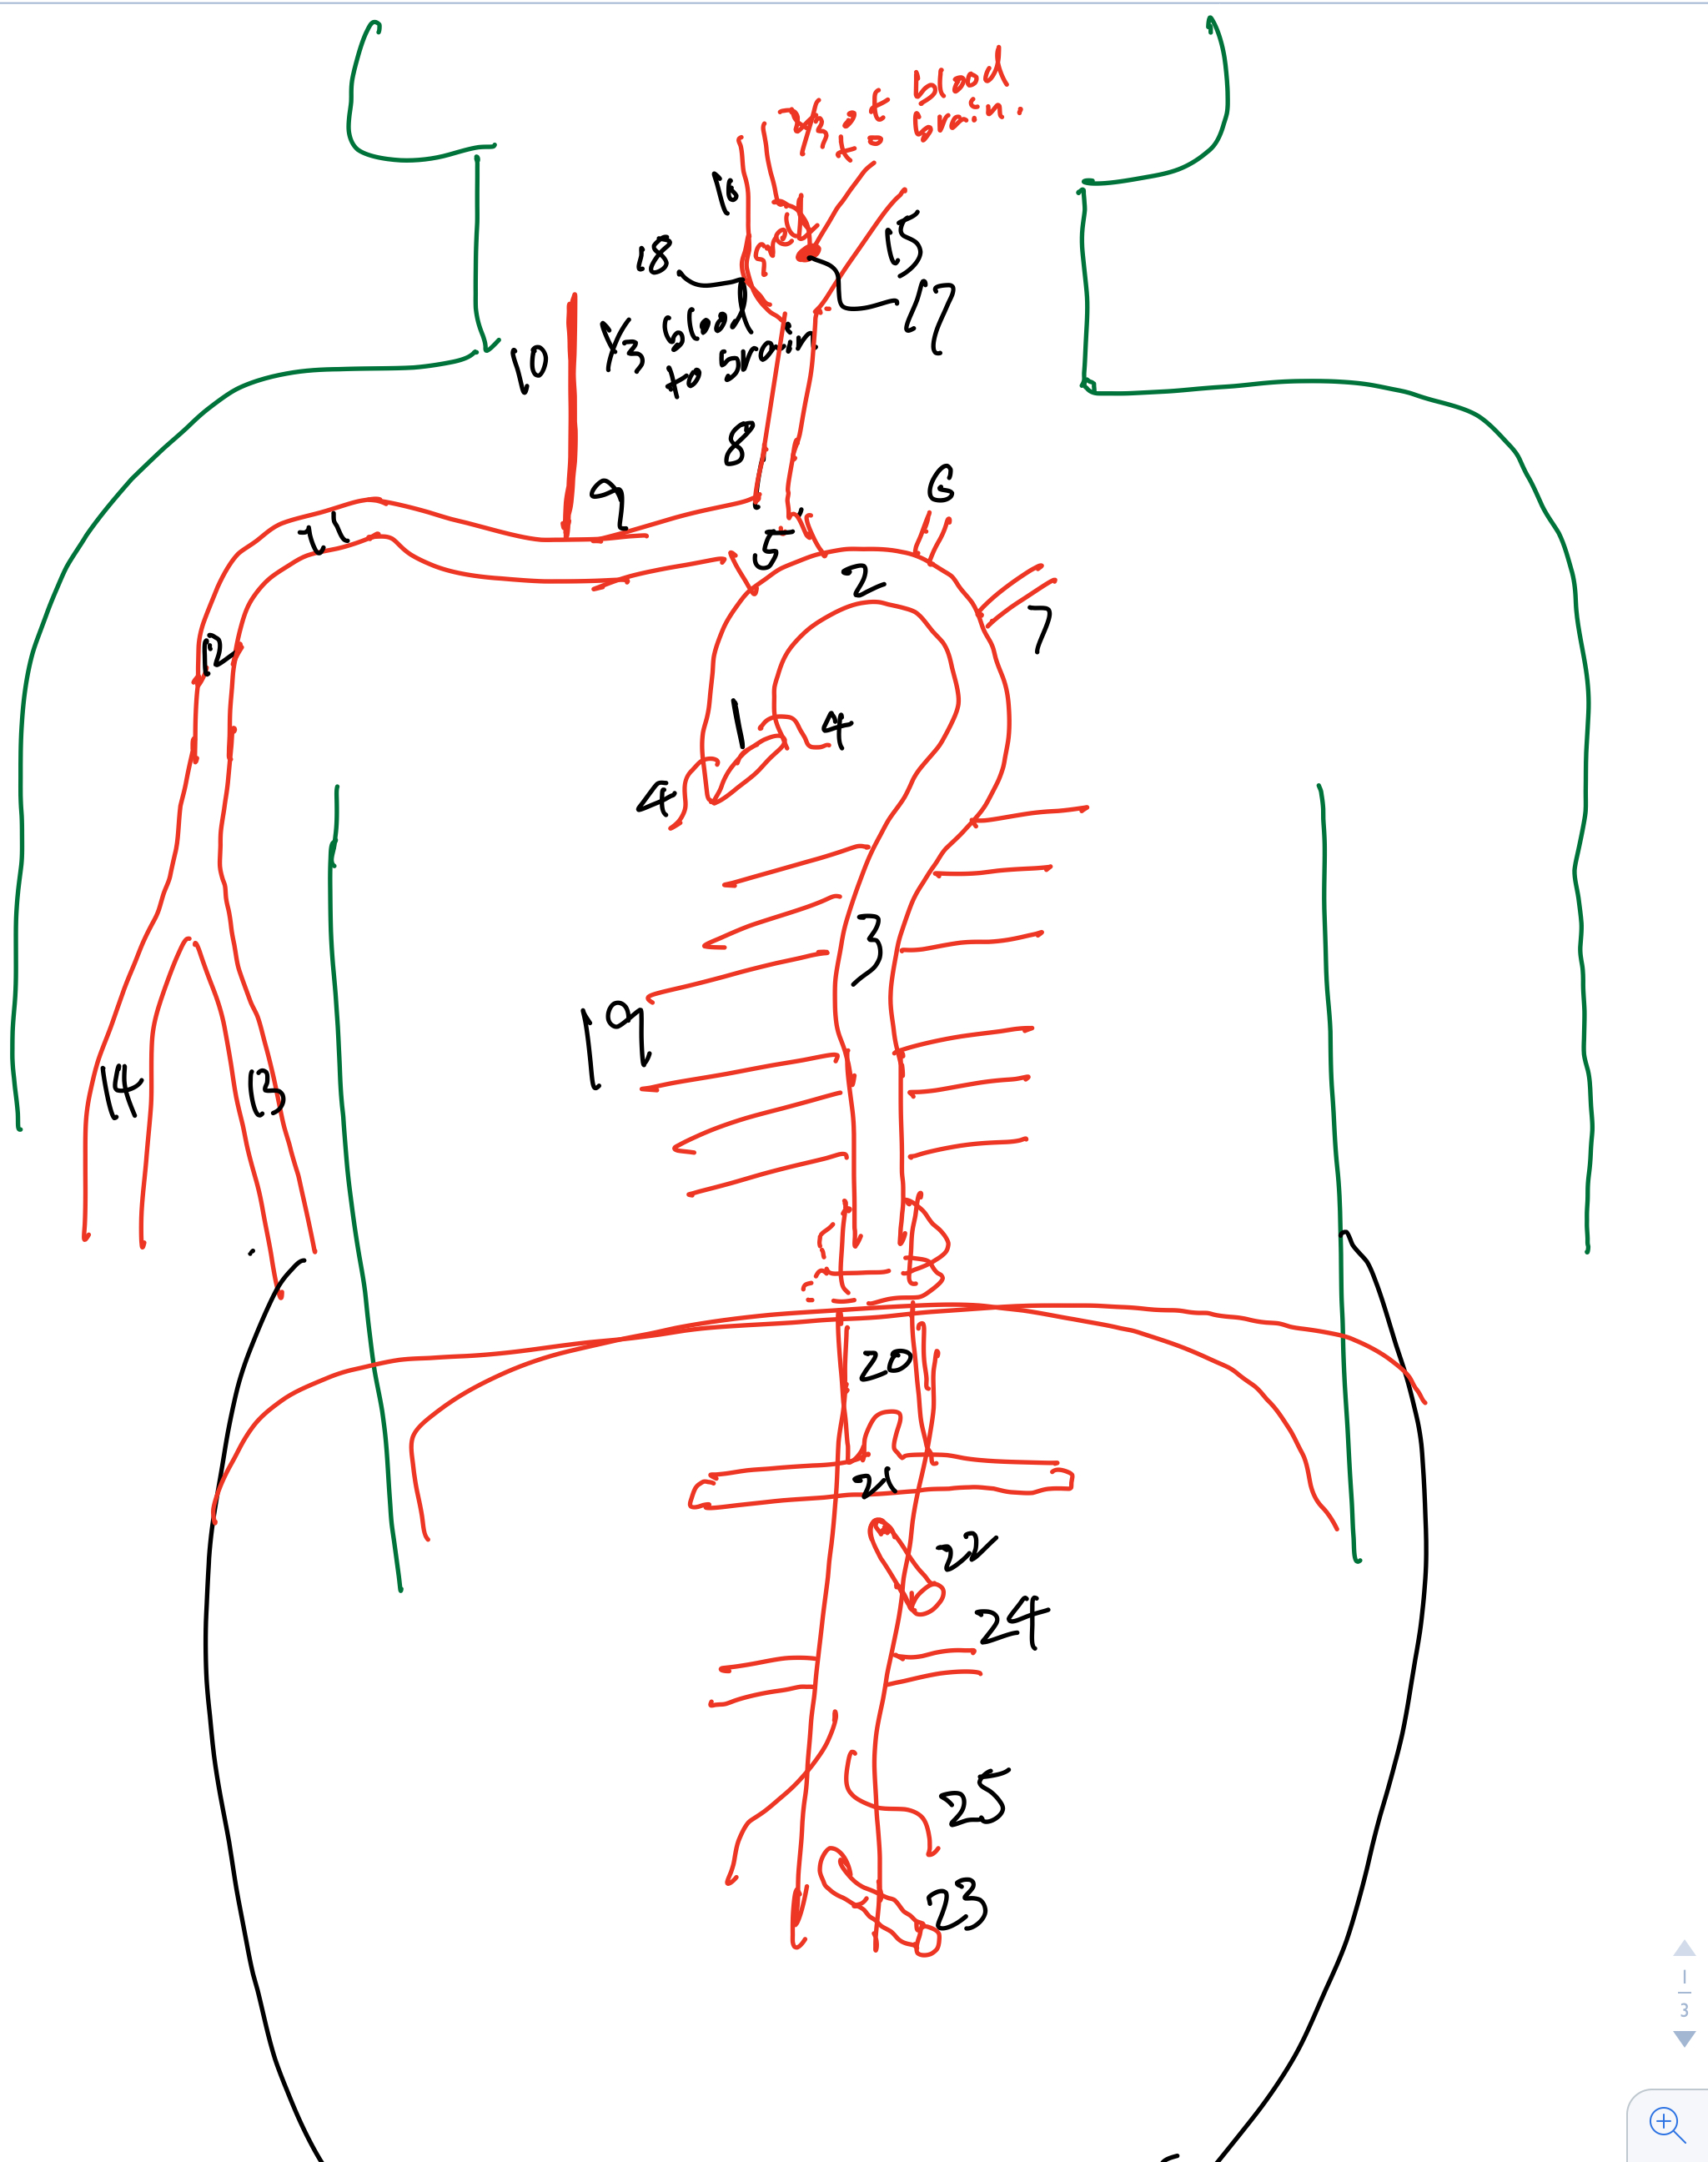 2/3 of blood
to brain.
16
15
18
17
10
1/3 blood
to brain
8
6
9
11
5
2
7
12
1
4
4
3
19
14
13
20
21
22
24
25
23
1
3